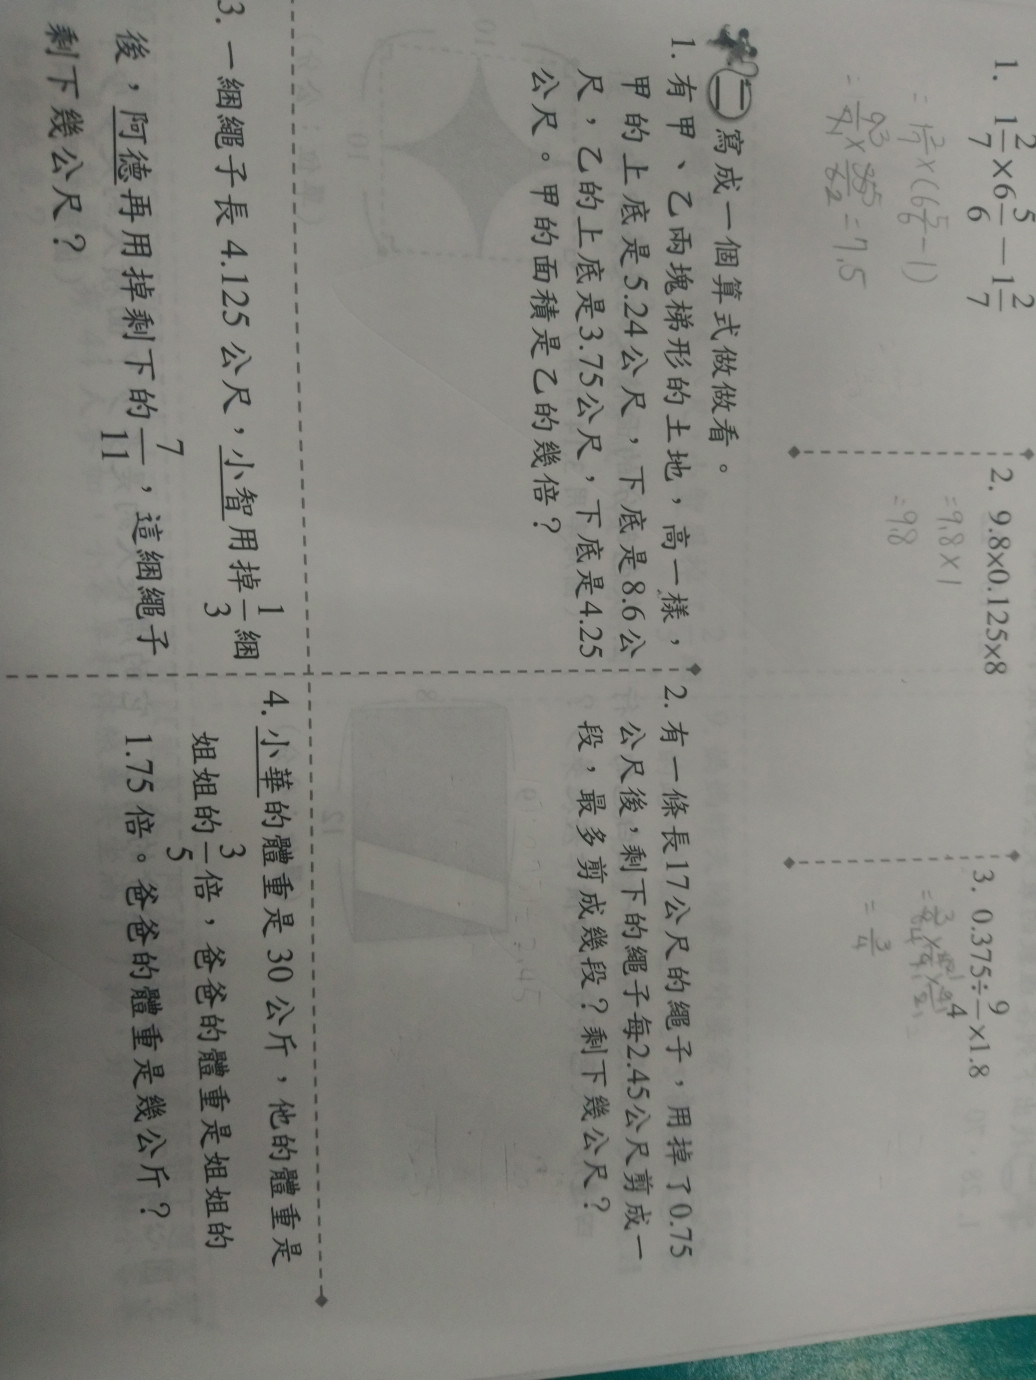 1. 1 2/7 × 6 5/6 − 1 2/7
= 1 2/7 × (6 5/6 − 1)
= 7.5
2. 9.8×0.125×8
= 9.8 × 1
= 9.8
3. 0.375÷9/4×1.8
= 3/4
二 寫成一個算式做做看。
1. 有甲、乙兩塊梯形的土地，高一樣，
甲的上底是5.24公尺，下底是8.6公
尺，乙的上底是3.75公尺，下底是4.25
公尺。甲的面積是乙的幾倍？
2. 有一條長17公尺的繩子，用掉了0.75
公尺後，剩下的繩子每2.45公尺剪成一
段，最多剪成幾段？剩下幾公尺？
3. 一綑繩子長4.125公尺，小智用掉1/3綑
後，阿德再用掉剩下的7/11，這綑繩子
剩下幾公尺？
4. 小華的體重是30公斤，他的體重是
姐姐的3/5倍，爸爸的體重是姐姐的
1.75倍。爸爸的體重是幾公斤？